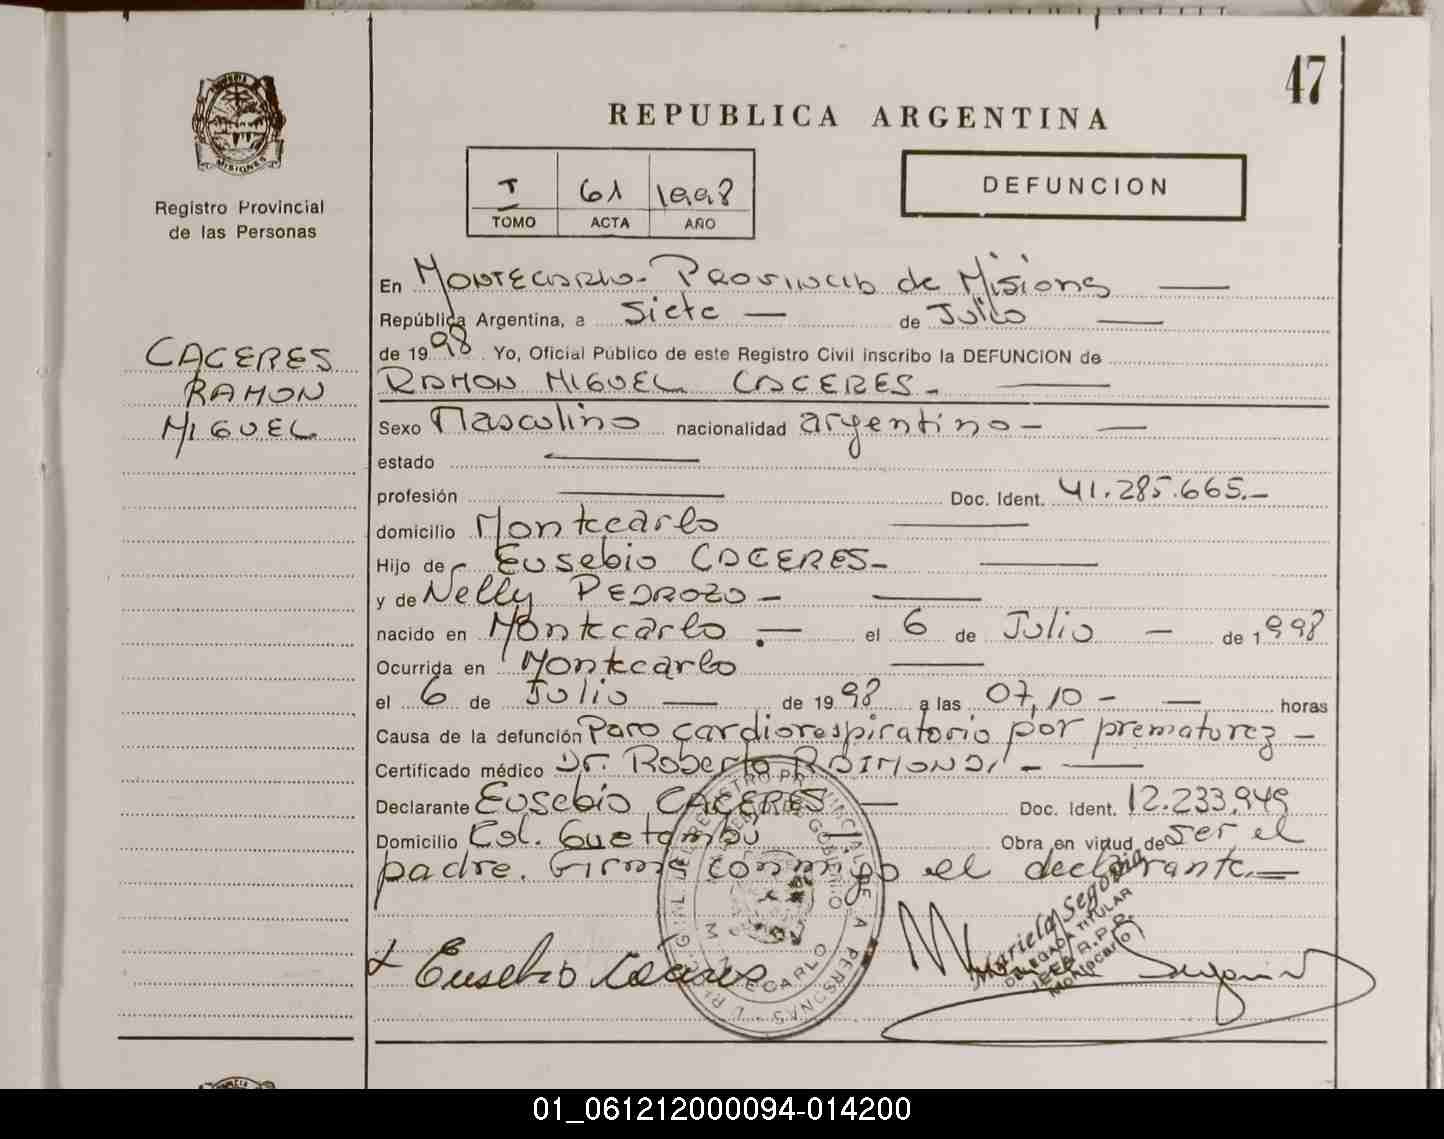 47
REPUBLICA ARGENTINA
MISIONES
Registro Provincial
de las Personas
I 61 1998
TOMO ACTA AÑO
DEFUNCION
CACERES
RAMON
MIGUEL
En Montecarlo - Provincia de Misiones
República Argentina, a Siete — de Julio
de 1998. Yo, Oficial Público de este Registro Civil inscribo la DEFUNCION de
RAMON MIGUEL CACERES -
Sexo Masculino nacionalidad argentino -
estado —
profesión — Doc. Ident. 41.285.665.-
domicilio Montecarlo
Hijo de Eusebio CACERES-
y de Nelly PEDROZO -
nacido en Montecarlo. — el 6 de Julio — de 1998
Ocurrida en Montecarlo
el 6 de Julio — de 1998 a las 07,10 - horas
Causa de la defunción Paro cardiorespiratorio por prematurez -
Certificado médico Dr. Roberto RAIMONDI -
Declarante Eusebio CACERES — Doc. Ident. 12.233.949
Domicilio Col. Guatambú Obra en virtud de ser el
padre. Firma conmigo el declarante.=
Eusebio Caceres
Mariela Segovia
DELEGADA TITULAR
JEFE R.P.P.
Montecarlo
01_061212000094-014200